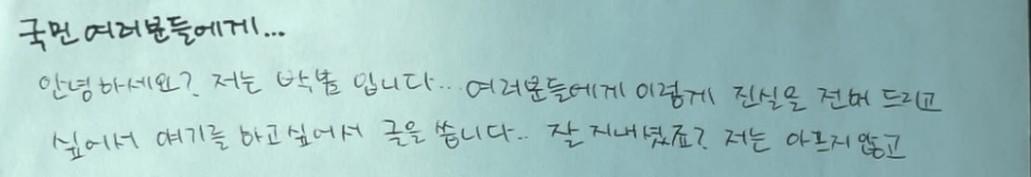 국민 여러분들에게...
안녕하세요? 저는 박봄 입니다... 여러분들에게 이렇게 진실을 전해 드리고
싶어서 얘기를 하고싶어서 글을 씁니다.. 잘 지내셨죠? 저는 아프지 않고